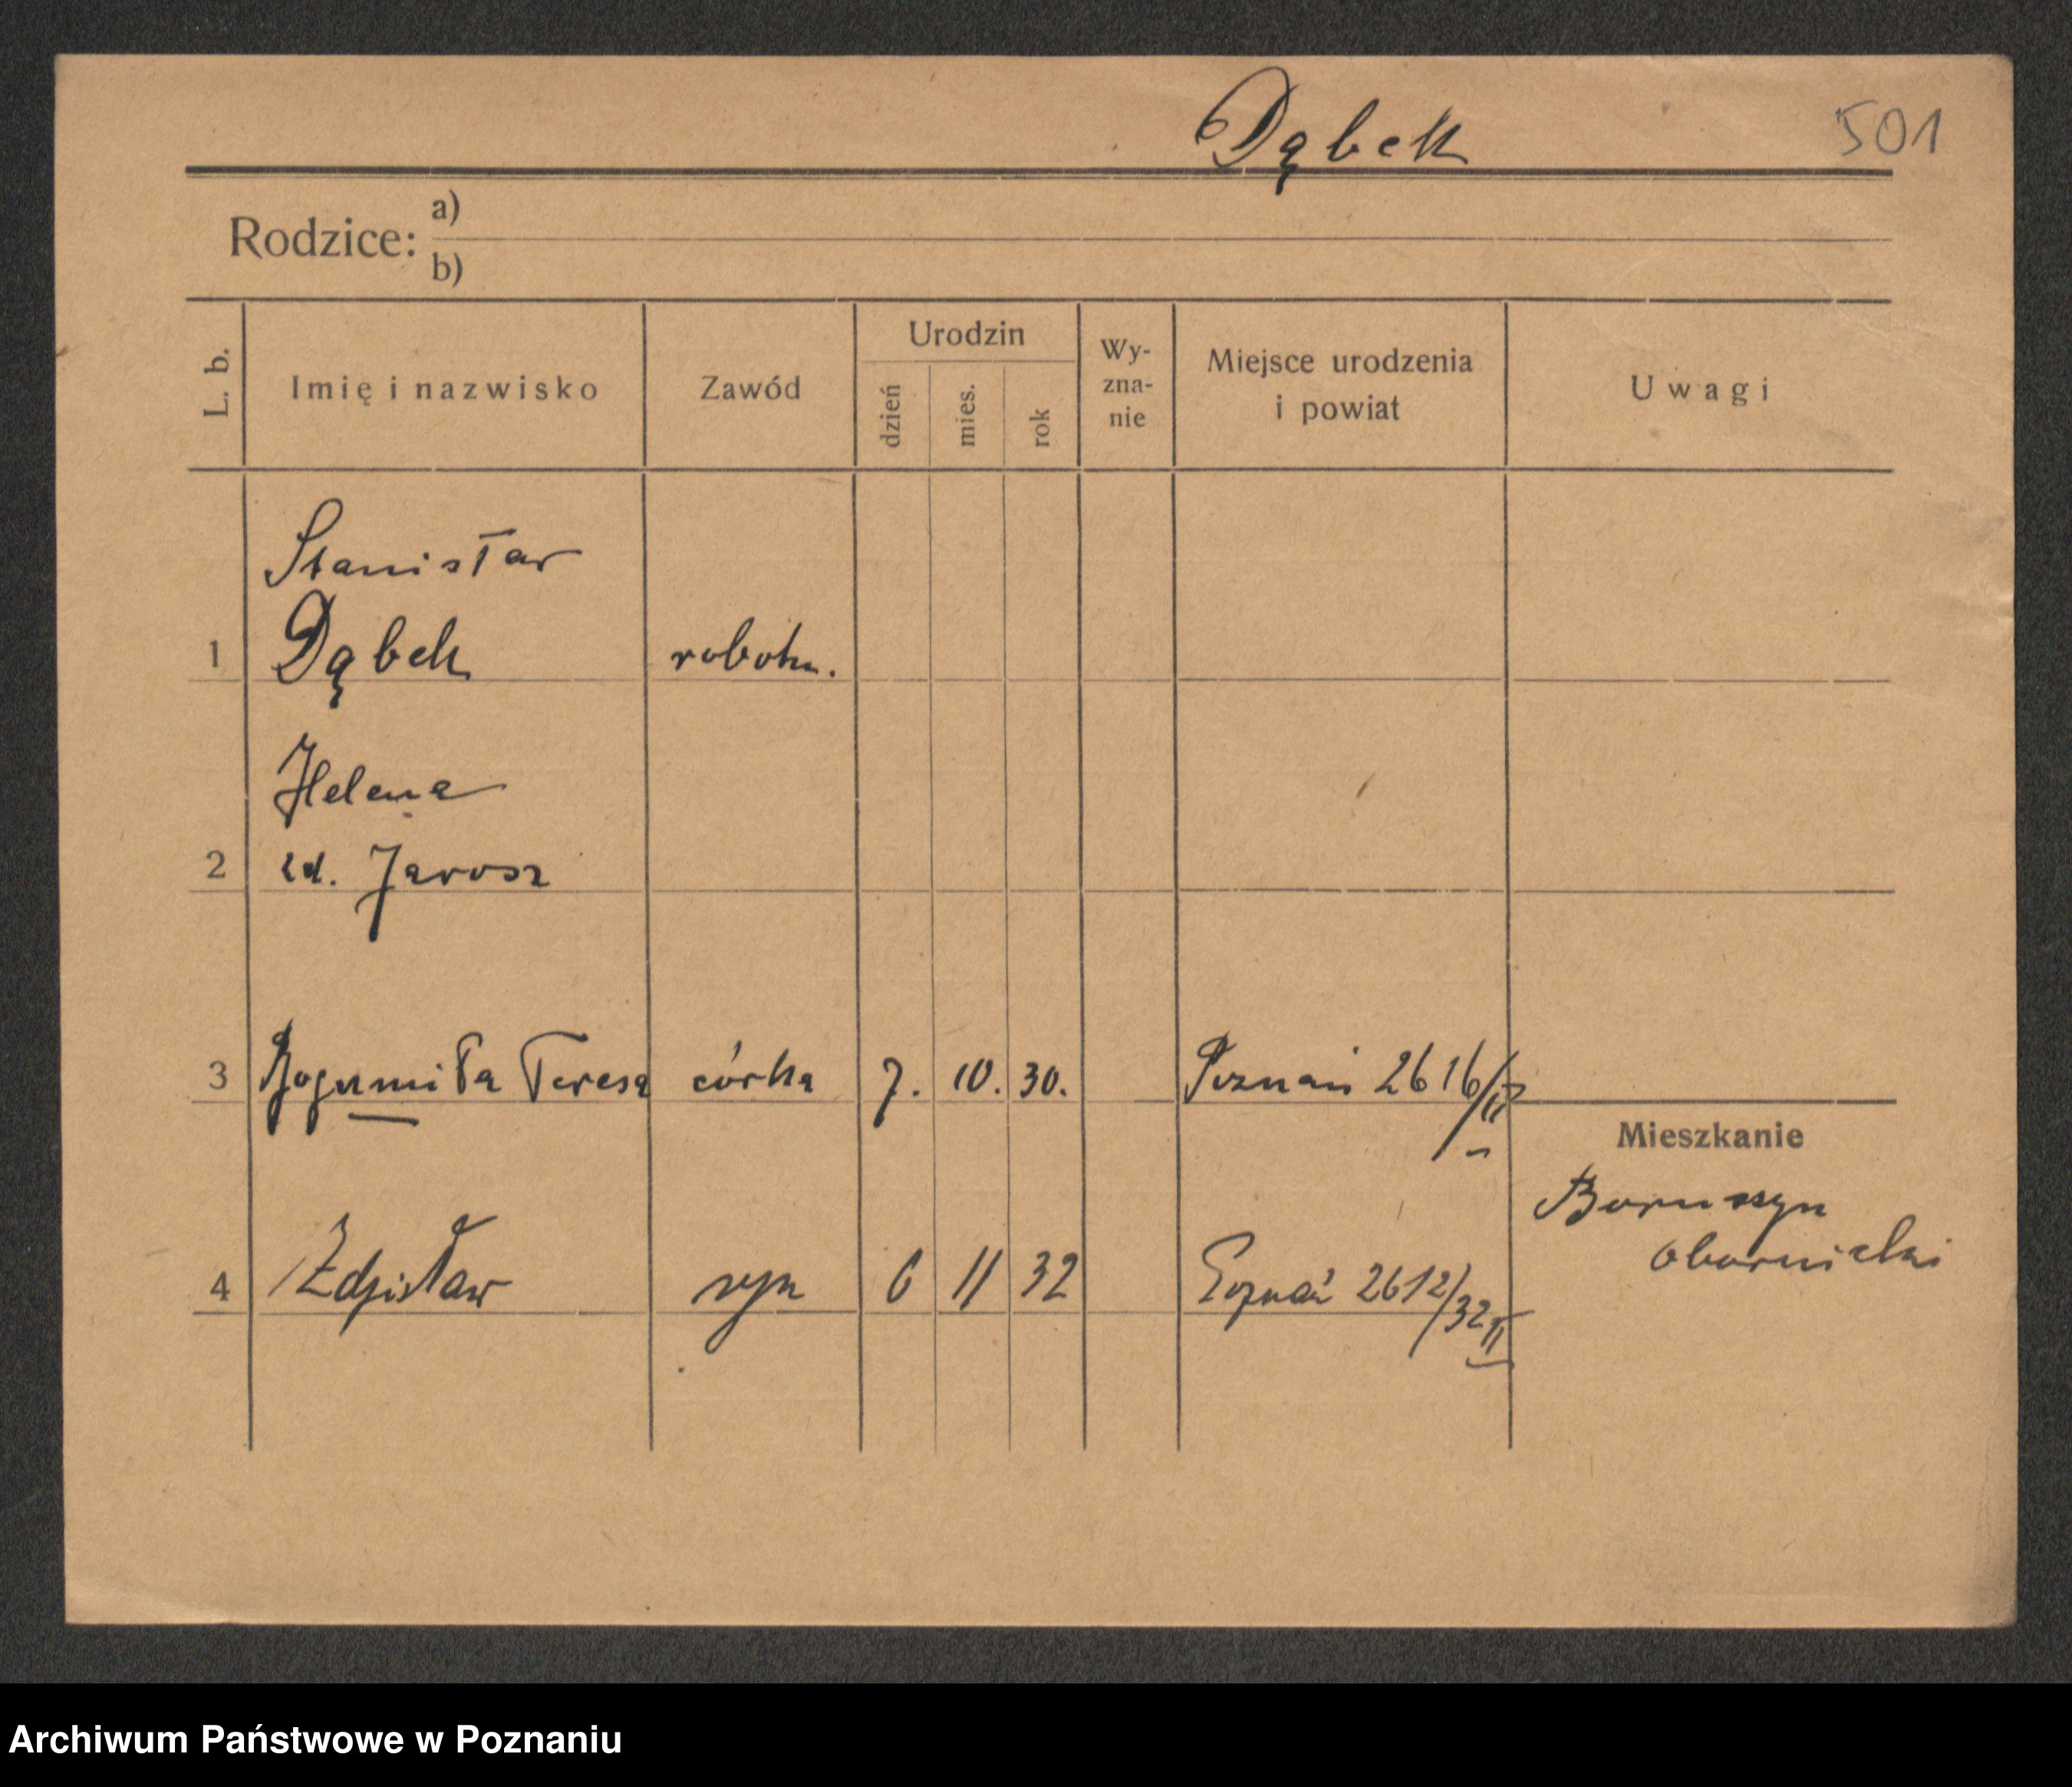 Dąbek
501
Rodzice: a)
b)
L. b.
Imię i nazwisko
Zawód
Urodzin
dzień
mies.
rok
Wy-
zna-
nie
Miejsce urodzenia
i powiat
Uwagi
Stanisław
1 Dąbek robotn.
Helena
2 zd. Jarosz
3 Bogumiła Teresa córka 7. 10. 30. Poznań 2616/II
Mieszkanie
Boruszyn
obornicki
4 Zdzisław syn 6 11 32 Poznań 2612/32 II
Archiwum Państwowe w Poznaniu